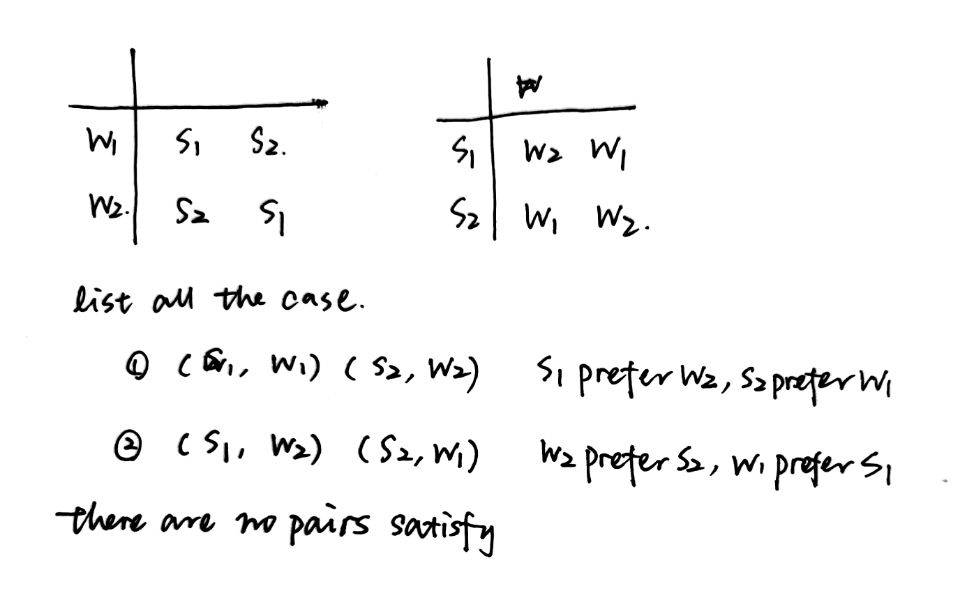 W
W1 S1 S2. S1 W2 W1
W2. S2 S1 S2 W1 W2.
list all the case.
① (S1, W1) (S2, W2) S1 prefer W2, S2 prefer W1
② (S1, W2) (S2, W1) W2 prefer S2, W1 prefer S1
there are no pairs satisfy